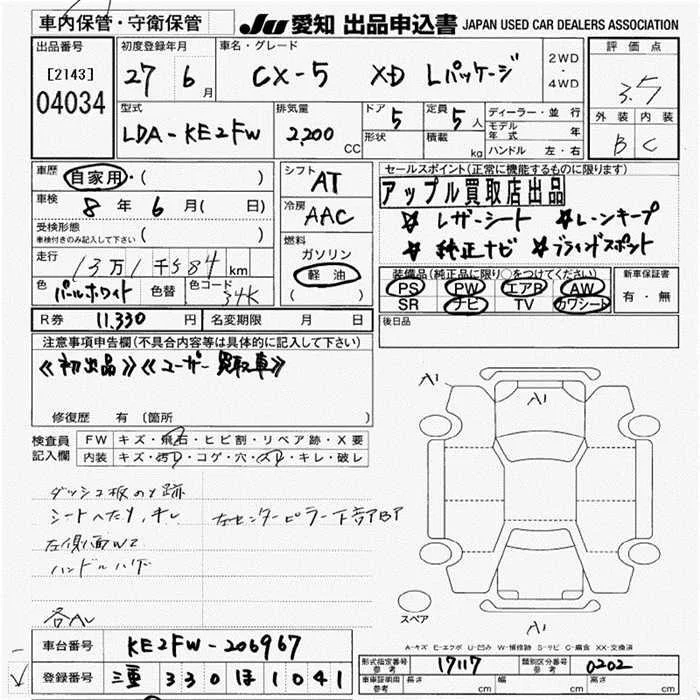 車内保管・守衛保管
JU 愛知 出品申込書 JAPAN USED CAR DEALERS ASSOCIATION
出品番号
[2143]
04034
初度登録年月
27 6月
車名・グレード
CX-5 XD Lパッケージ
2WD
・
4WD
評価点
3.5
外装 内装
B C
型式
LDA-KE2FW
排気量
2,200 CC
ドア 5
形状
定員 5人
積載 kg
ディーラー・並行
モデル年式 年
ハンドル 左・右
車歴 自家用・( )
車検 8年 6月( 日)
受検形態
車検付きのみ記入して下さい ( )
走行 13万1千584 km
色 パールホワイト 色替 色コード 34K
シフト AT
冷房 AAC
燃料
ガソリン
軽油
( )
セールスポイント(正常に機能するものに限ります)
アップル買取店出品
☆レザーシート ☆レーンキープ
☆純正ナビ ☆ブラインドスポット
装備品(純正品に限り○をつけてください)
PS PW エアB AW
SR ナビ TV カワシート
新車保証書
有・無
R券 11,330円 名変期限 月 日
後日品
注意事項申告欄(不具合内容等は具体的に記入して下さい)
《初出品》《ユーザー買取車》
修復歴 有 (箇所 )
検査員記入欄
FW キズ・飛石・ヒビ割・リペア跡・X要
内装 キズ・汚レ・コゲ・穴・スレ・キレ・破レ
ダッシュ板のり跡
シートヘたり,キレ 左センターピラー下部BP
左側面W2
ハンドルハゲ
各AL
A1
A1
A1
スペア
A-キズ E-エクボ U-凹み W-補修跡 S-サビ C-腐食 XX-交換済
車台番号 KE2FW-206967
登録番号 三重 330 ほ 1041
形式指定番号 参考 17117 類別区分番号 参考 0202
車庫証明用 参考 長さ cm 幅 cm 高さ cm